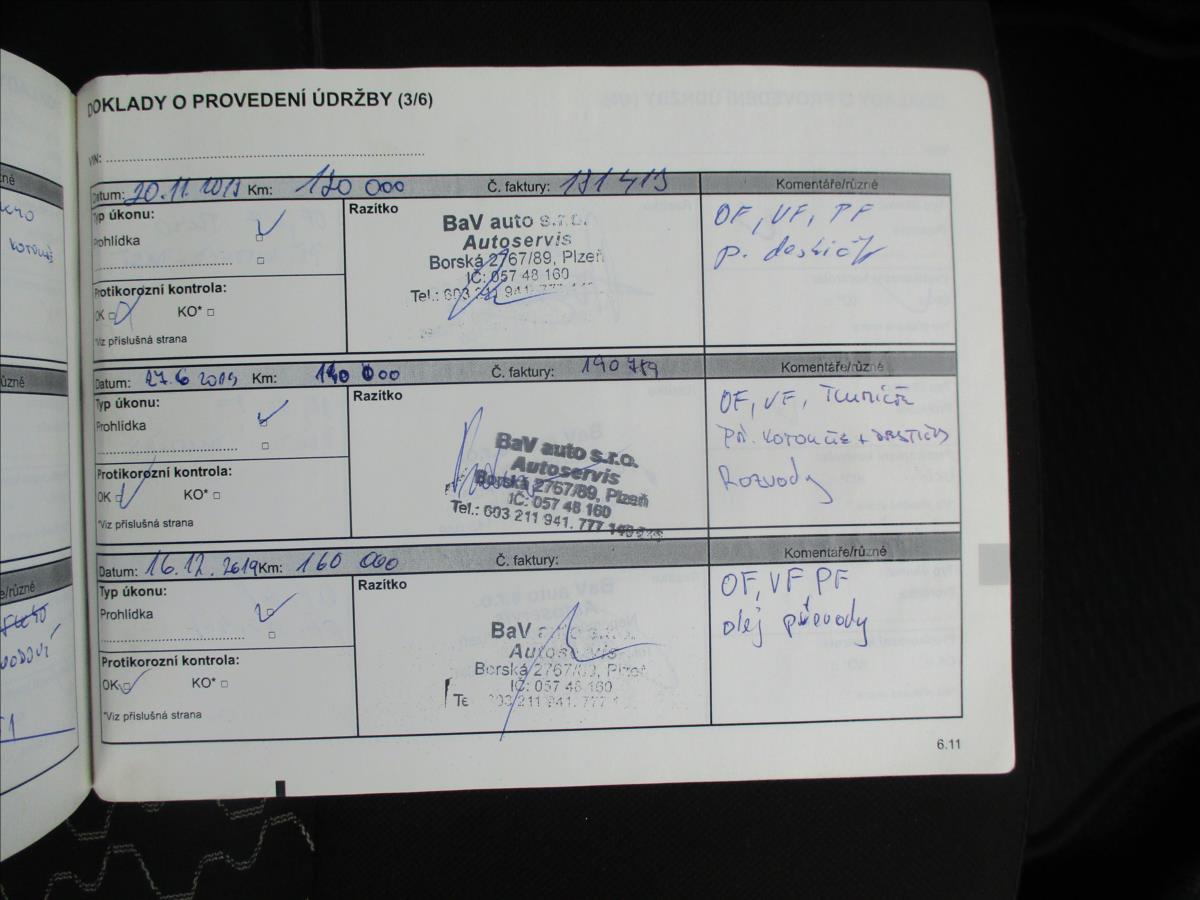 DOKLADY O PROVEDENÍ ÚDRŽBY (3/6)
VIN:
Datum: Km: 000 Č. faktury: Komentáře/různé
Typ úkonu:
Prohlídka
Protikorozní kontrola:
OK KO*
*Viz příslušná strana
Razítko
BaV auto s.r.o.
Autoservis
Borská 2767/89, Plzeň
IČ: 057 48 160
Tel.: 603 211 941.
OF, VF, PF
Datum: 27.6 2019 Km: 140 000 Č. faktury: Komentáře/různé
Typ úkonu:
Prohlídka
Protikorozní kontrola:
OK KO*
*Viz příslušná strana
Razítko
BaV auto s.r.o.
Autoservis
Borská 2767/89, Plzeň
IČ: 057 48 160
Tel.: 603 211 941. 777
OF, VF,
Rozvody
Datum: 16.12.2019 Km: 160 000 Č. faktury: Komentáře/různé
Typ úkonu:
Prohlídka
Protikorozní kontrola:
OK KO*
*Viz příslušná strana
Razítko
BaV auto s.r.o.
Autoservis
Borská 2767/89, Plzeň
IČ: 057 48 160
211 941. 777
OF, VF PF
olej převody
6.11